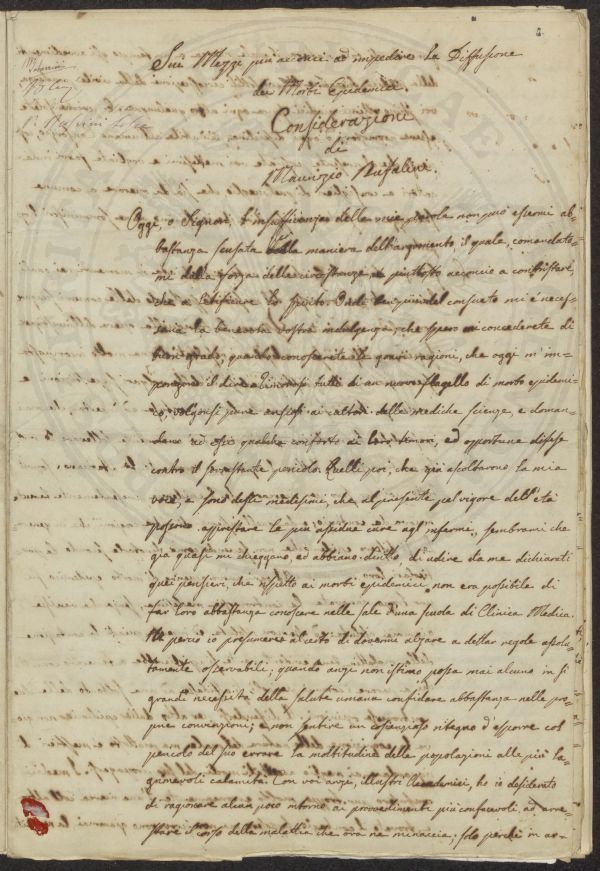 Sui Mezzi più acconci ad impedire la Diffusione
dei Morbi Epidemici.
Considerazioni
di
Maurizio Bufalini.
Oggi, o Signori, l'insufficienza della mia parola non può essermi ab-
bastanza scusata dalla maniera dell'argomento il quale, comandato-
mi dalla forza delle circostanze è piuttosto acconcio a contristare,
che a letificare lo spirito. Ond'è più del consueto mi è neces-
saria la benevola vostra indulgenza; che spero mi concederete di
buon grado, quando conoscerete le gravi ragioni, che oggi m'im-
pongono il dire. Timorosi tutti di un nuovo flagello di morbo epidemi-
co, volgonsi pure ansiosi ai cultori delle mediche scienze, e doman-
dano ad essi qualche conforto ai loro timori, ed opportune difese
contro il sovrastante pericolo. Quelli poi, che già ascoltarono la mia
voce, e sono dessi medesimi, che al presente pel vigore dell'età
possono apprestare le più assidue cure agl'infermi, sembrami che
già quasi mi chieggano, ed abbiano diritto, di udire da me dichiarati
quei pensieri, che rispetto ai morbi epidemici non era possibile di
far loro abbastanza conoscere nelle sale d'una scuola di Clinica Medica.
Nè perciò io presumerei al certo di dovermi alzare a dettar regole assolu-
tamente osservabili; quando anzi non istimo possa mai alcuno in sì
grandi necessità della salute umana confidare abbastanza nelle pro-
prie convinzioni, e non sentire un coscienzioso ritegno d'esporre col
pericolo del suo errore la moltitudine delle popolazioni alle più la-
grimevoli calamità. Con voi anzi, illustri Accademici, ho io desiderato
di ragionare alcun poco intorno ai provvedimenti più confacevoli ad arre-
stare il corso della malattia che ora ne minaccia; solo perchè in ar-